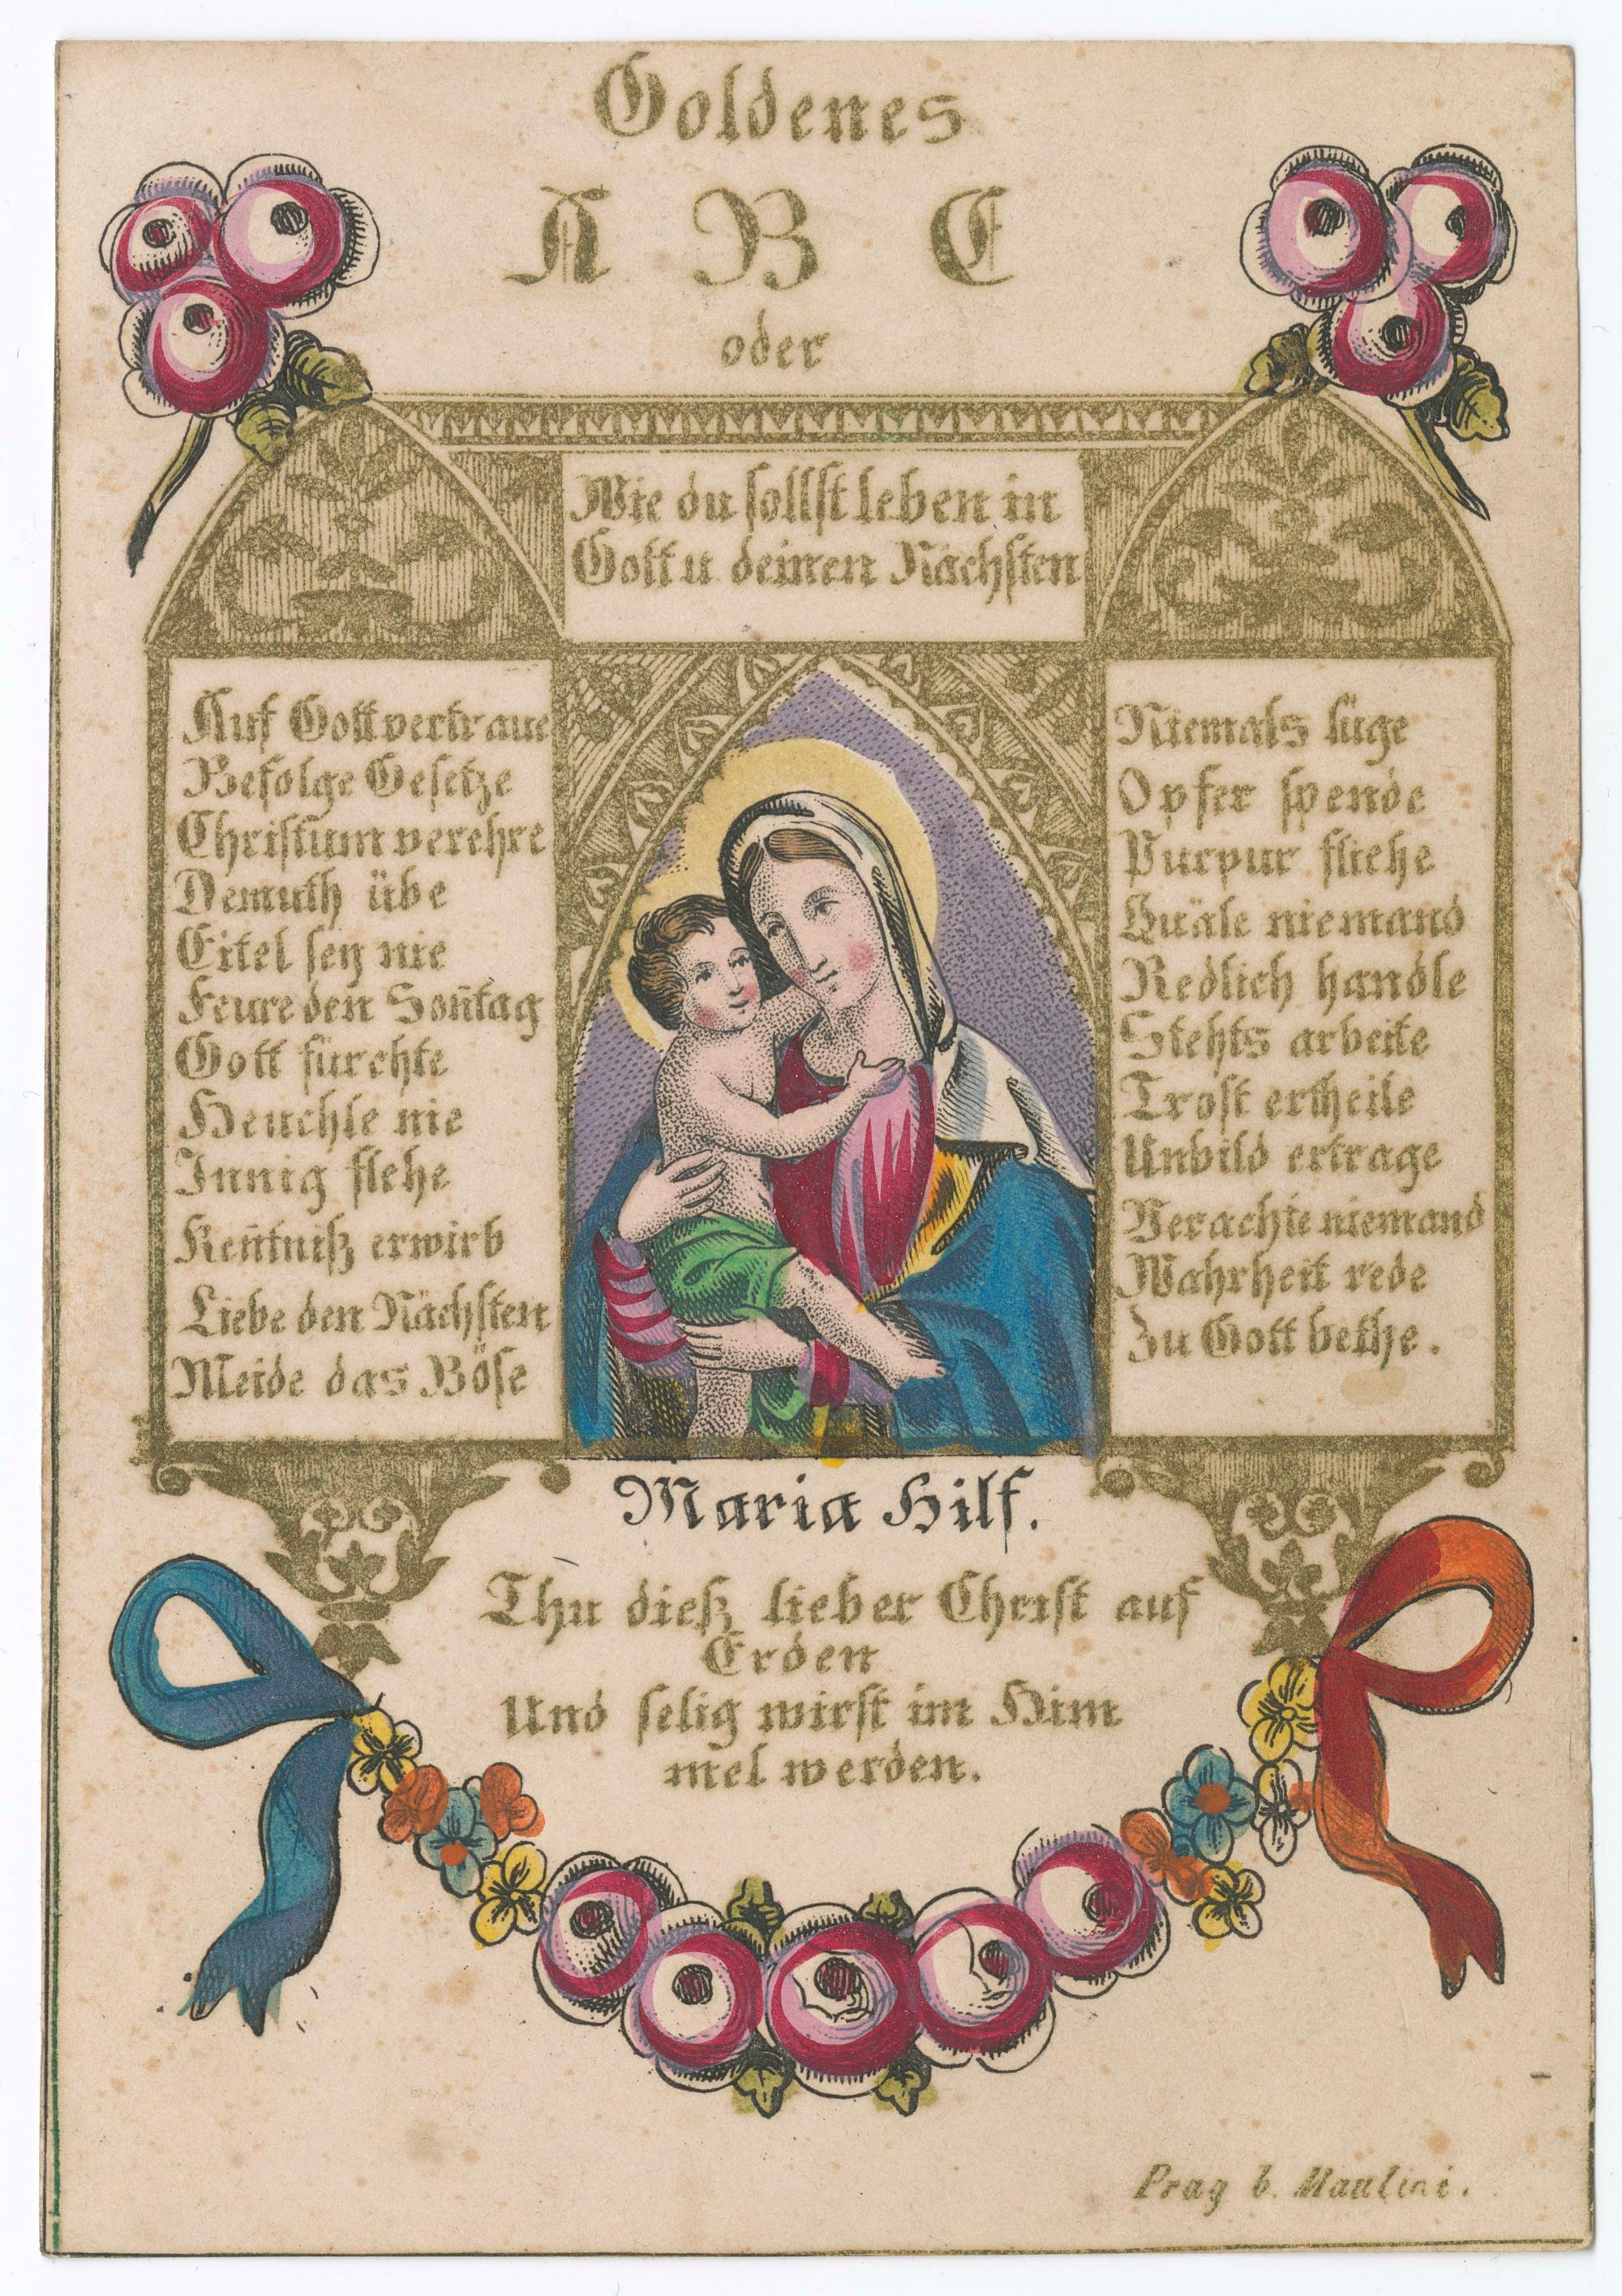 Goldenes
A B C
oder
Wie du sollst leben in
Gott u deinen Nächsten
Auf Gott vertraue
Befolge Gesetze
Christum verehre
Demuth übe
Eitel sey nie
Feure den Soñtag
Gott fürchte
Heuchle nie
Innig flehe
Keñtniß erwirb
Liebe den Nächsten
Meide das Böse
Niemals lüge
Opfer spende
Purpur fliehe
Quäle niemand
Redlich handle
Stehts arbeite
Trost ertheile
Unbild ertrage
Verachte niemand
Wahrheit rede
Zu Gott bethe.
Maria Hilf.
Thu dieß lieber Christ auf
Erden
Und selig wirst im Him
mel werden.
Prag b. Maulini.